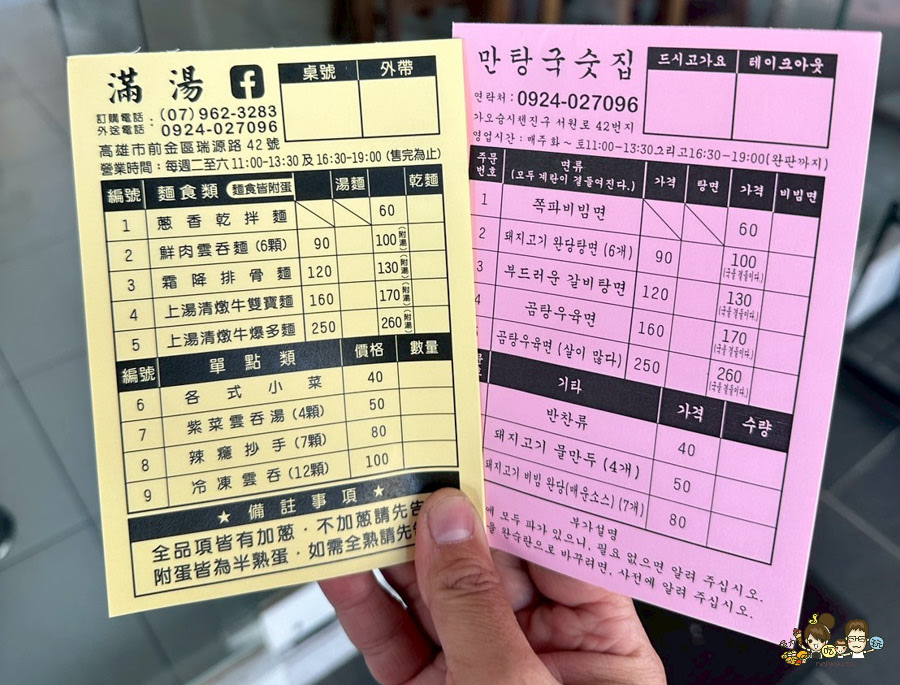 滿湯 f
桌號 外帶
訂購電話：(07)962-3283
外送電話 0924-027096
高雄市前金區瑞源路42號
營業時間：每週二至六 11:00-13:30 及 16:30-19:00 (售完為止)
編號 麵食類 麵食皆附蛋 湯麵 乾麵
1 蔥香乾拌麵 60
2 鮮肉雲吞麵(6顆) 90 100(附湯)
3 霜降排骨麵 120 130(附湯)
4 上湯清燉牛雙寶麵 160 170(附湯)
5 上湯清燉牛爆多麵 250 260(附湯)
編號 單點類 價格 數量
6 各式小菜 40
7 紫菜雲吞湯(4顆) 50
8 辣癮抄手(7顆) 80
9 冷凍雲吞(12顆) 100
★ 備註事項 ★
全品項皆有加蔥，不加蔥請先告
附蛋皆為半熟蛋，如需全熟請先
만탕국숫집
드시고가요 테이크아웃
연락처：0924-027096
가오슝시첸진구 서원로 42번지
영업시간：매주화~토11:00-13:30그리고16:30-19:00(완판까지)
주문번호 면류 (모두 계란이 곁들여진다.) 가격 탕면 가격 비빔면
1 쪽파비빔면 60
2 돼지고기 완당탕면 (6개) 90 100 (국을 곁들이다.)
3 부드러운 갈비탕면 120 130 (국을 곁들이다.)
4 곰탕우육면 160 170 (국을 곁들이다.)
곰탕우육면 (살이 많다) 250 260 (국을 곁들이다.)
호 기타 가격 수량
반찬류 40
돼지고기 물만두 (4개) 50
돼지고기 비빔 완당(매운소스) (7개) 80
부가설명
에 모두 파가 있으니, 필요 없으면 알려 주십시오.
을 완숙란으로 바꾸려면, 사전에 알려 주십시오.